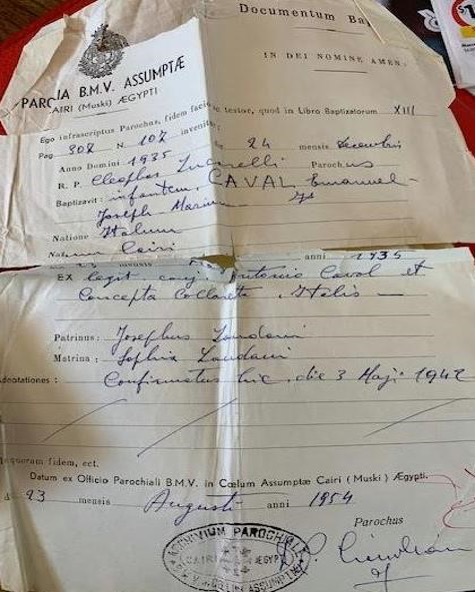 Documentum Ba
IN DEI NOMINE AMEN.
PAROCIA B.M.V. ASSUMPTÆ
CAIRI (Muski) ÆGYPTI
Ego infrascriptus Parochus, fidem facio testor, quod in Libro Baptizatorum XIII
Pag. 302 N. 107 invenitur:
die 24 mensis Decembris
Anno Domini 1935
R. P. Cleophas Parochus
Baptizavit: infantem CAVAL Emanuel-
Joseph-Marium
Natione Italum
Natum Cairi
mensis anni 1935
EX legit. conj. Antonio Caval et
Concepta Collareta. Italis —
Patrinus: Josephus Landani
Matrina: Sophia Landani
Adnotationes: Confirmatus hic, die 3 Maji 1942
quorum fidem, ect.
Datum ex Officio Parochiali B.M.V. in Cœlum Assumptæ Cairi (Muski) Ægypti.
d 23 mensis Augusti anni 1954
Parochus
ARCHIVIUM PAROCHIALE
CAIRI ÆGYPTI